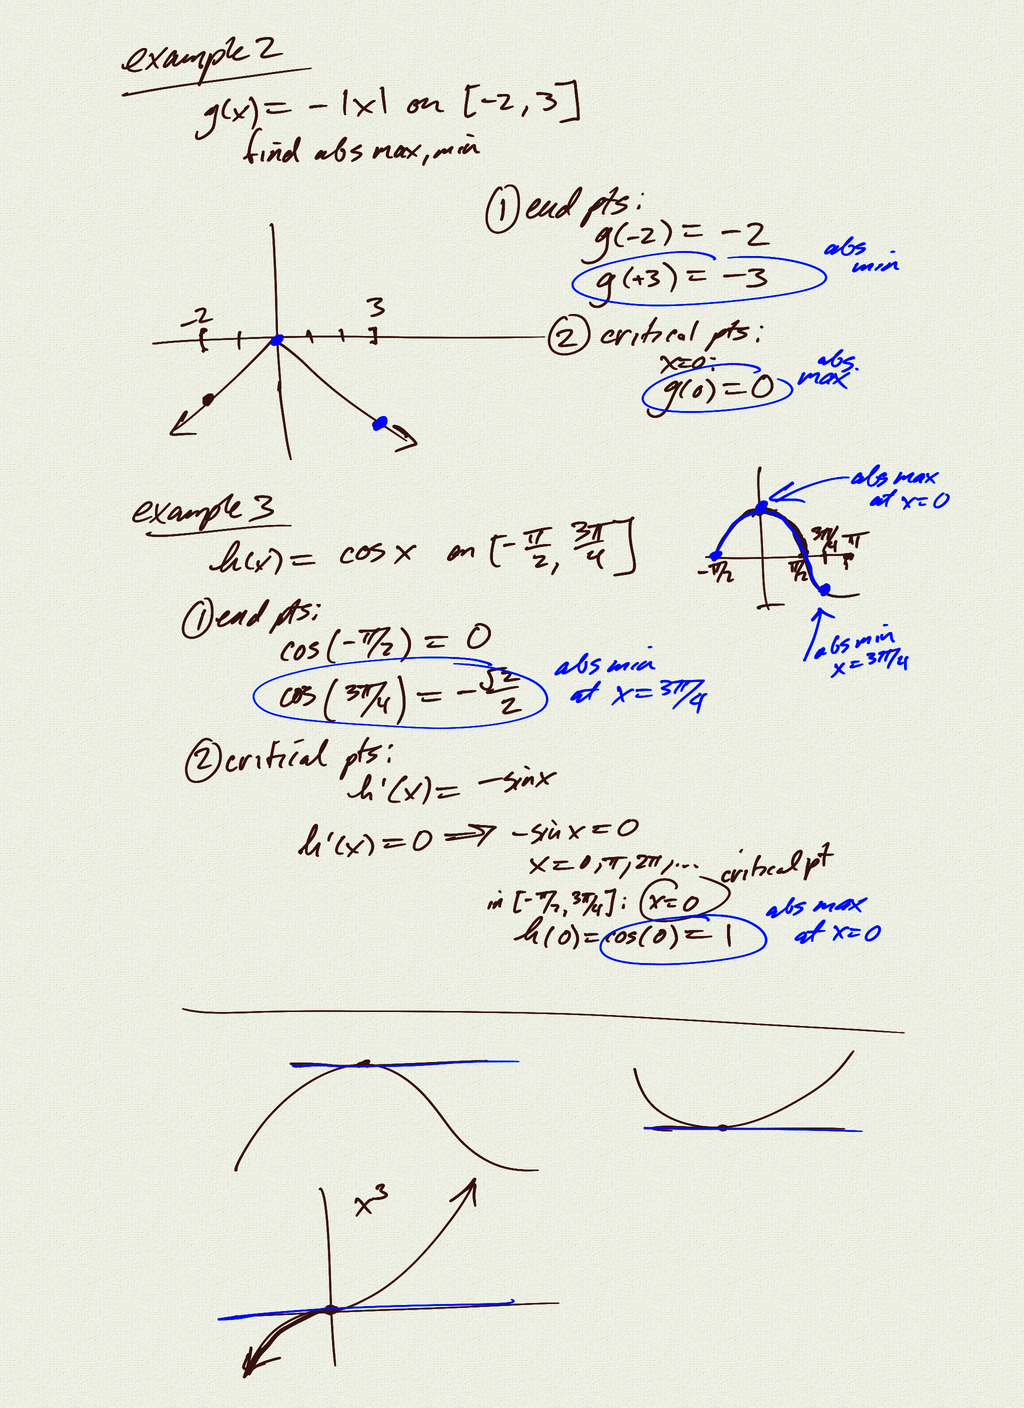 example 2
g(x) = -|x| on [-2, 3]
find abs max, min
① end pts:
g(-2) = -2
g(+3) = -3
abs min
-2
3
② critical pts:
x=0:
g(0) = 0
abs. max
example 3
h(x) = cos x on [-π/2, 3π/4]
abs max
at x=0
-π/2
π/2
3π/4
π
abs min
x = 3π/4
① end pts:
cos(-π/2) = 0
cos(3π/4) = -√2/2
abs min
at x = 3π/4
② critical pts:
h'(x) = -sin x
h'(x) = 0 ⟹ -sin x = 0
x = 0, π, 2π, ...
critical pt
in [-π/2, 3π/4]: x=0
h(0) = cos(0) = 1
abs max
at x=0
x³